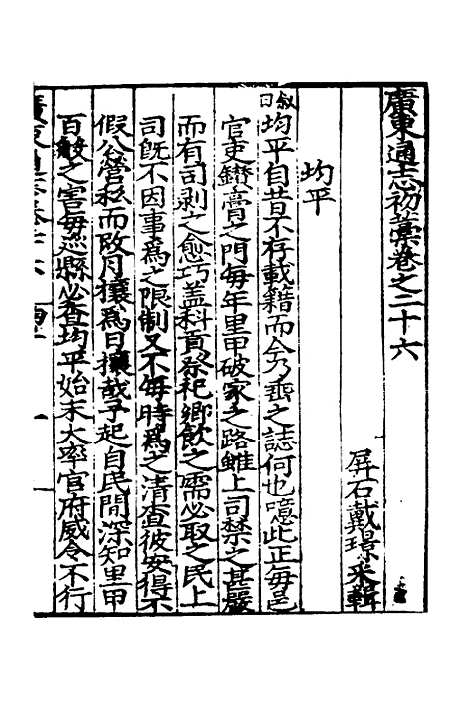 廣東通志初藁卷之二十六
屏石戴璟采輯
均平
敘曰均平自昔不存載籍而今乃垂之誌何也噫此正每邑
官吏鑽膏之門每年里甲破家之路雖上司禁之甚嚴
而有司剥之愈巧蓋科貢祭祀鄉飲之需必取之民上
司旣不因事爲之限制又不每時爲之清查彼安得不
假公營私而改月攘爲日攘哉予起自民間深知里甲
百般之害每巡縣必查均平始末大率官府威令不行
廣東通志卷二十六